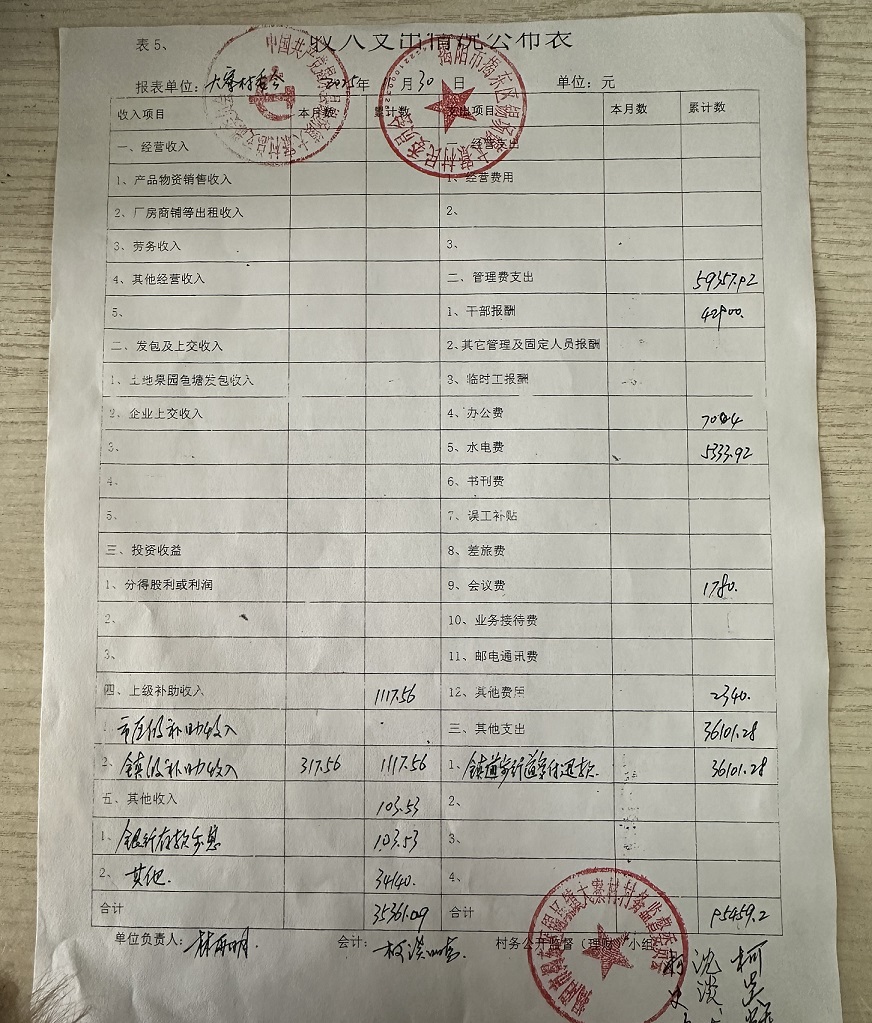 表5、 收入支出情况公布表
报表单位：大寮村委会 2025年 月30日 单位：元
收入项目 本月数 累计数 支出项目 本月数 累计数
一、经营收入 一、经营支出
1、产品物资销售收入 1、经营费用
2、厂房商铺等出租收入 2、
3、劳务收入 3、
4、其他经营收入 二、管理费支出 59357.92
5、 1、干部报酬 42900.
二、发包及上交收入 2、其它管理及固定人员报酬
1、土地果园鱼塘发包收入 3、临时工报酬
2、企业上交收入 4、办公费 7004
3、 5、水电费 5333.92
4、 6、书刊费
5、 7、误工补贴
三、投资收益 8、差旅费
1、分得股利或利润 9、会议费 1780.
2、 10、业务接待费
3、 11、邮电通讯费
四、上级补助收入 1117.56 12、其他费用 2340.
市区级补助收入 三、其他支出 36101.28
2、镇级补助收入 317.56 1117.56 1、镇道 36101.28
五、其他收入 103.53 2、
1、银行存款 103.53 3、
2、其他. 34140. 4、
合计 35361.09 合计 95459.2
单位负责人： 会计： 村务公开监督（理财）小组
揭阳市揭东区锡场镇大寮村民委员会